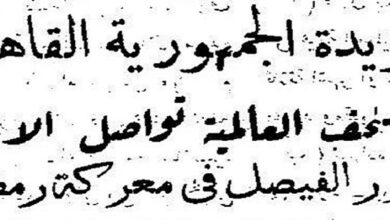 يدة الجمهورية القاه
تحف العالمية تواصل الا
ر الفيصل فى معركة رمض